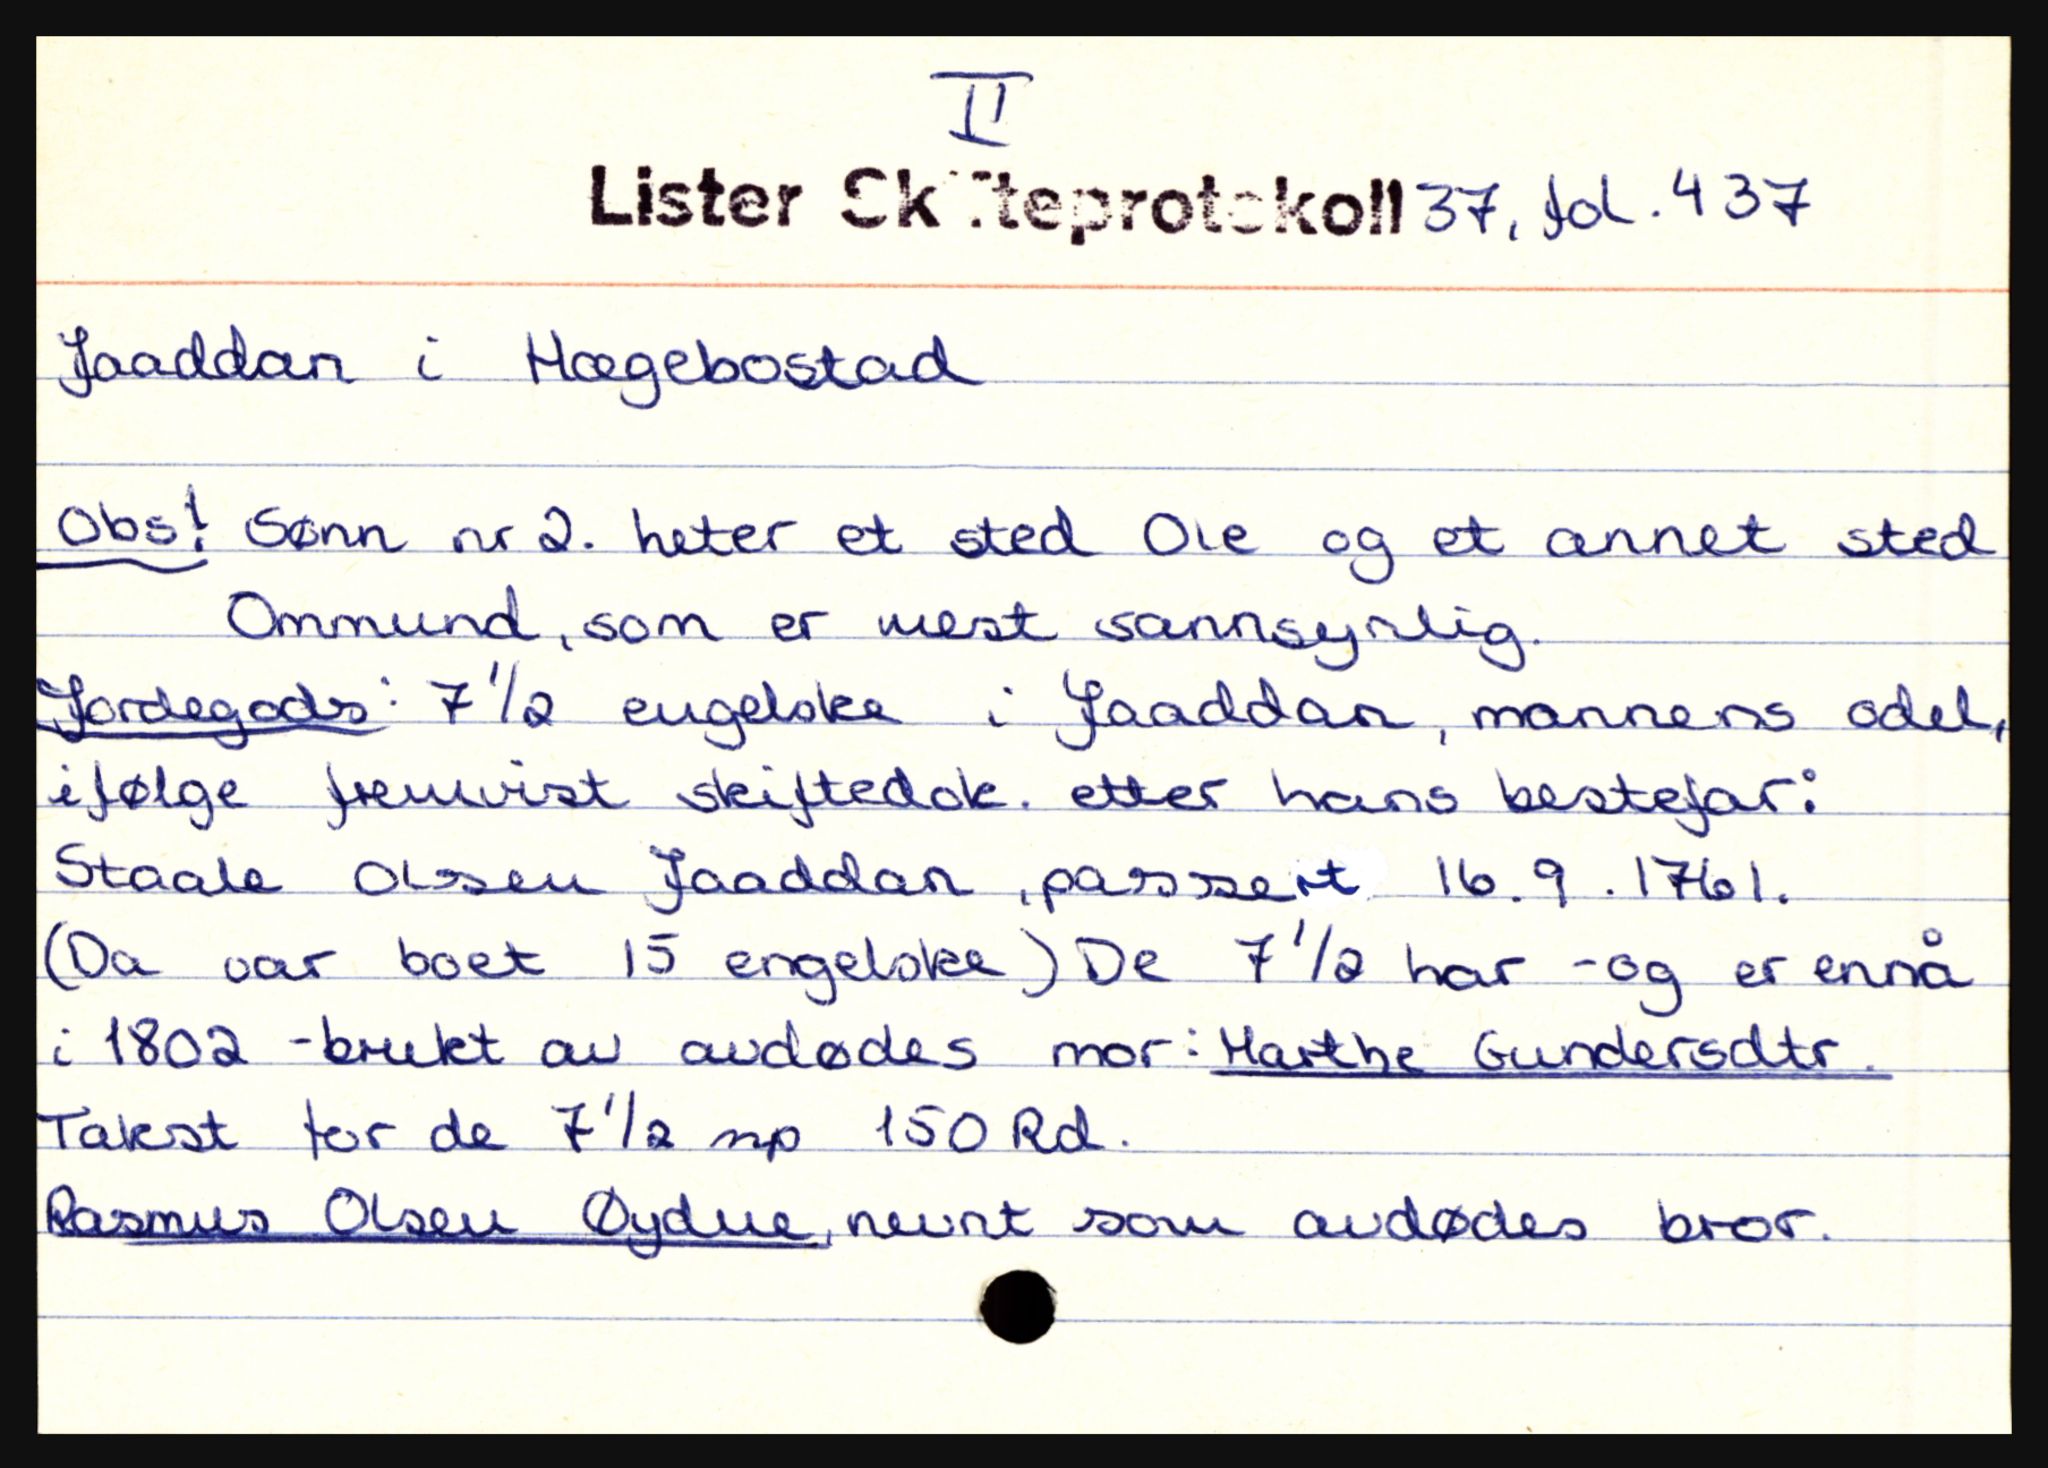 II
Lister Skifteprotokoll 37, fol. 437
Jaaddan i Hægebostad
Obs! Sønn nr 2. heter et sted Ole og et annet sted
Ommund, som er mest sannsynlig.
Jordegods: 7 1/2 engelske i Jaaddan, mannens odel,
ifølge fremvist skiftedok. etter hans bestefar:
Staale Olssen Jaaddan, passert 16.9.1761.
(Da var boet 15 engelske) De 7 1/2 har -og er ennå
i 1802 -brukt av avdødes mor: Marthe Gundersdtr.
Takst for de 7 1/2 np 150 Rd.
Rasmus Olsen Øydne, nevnt som avdødes bror.